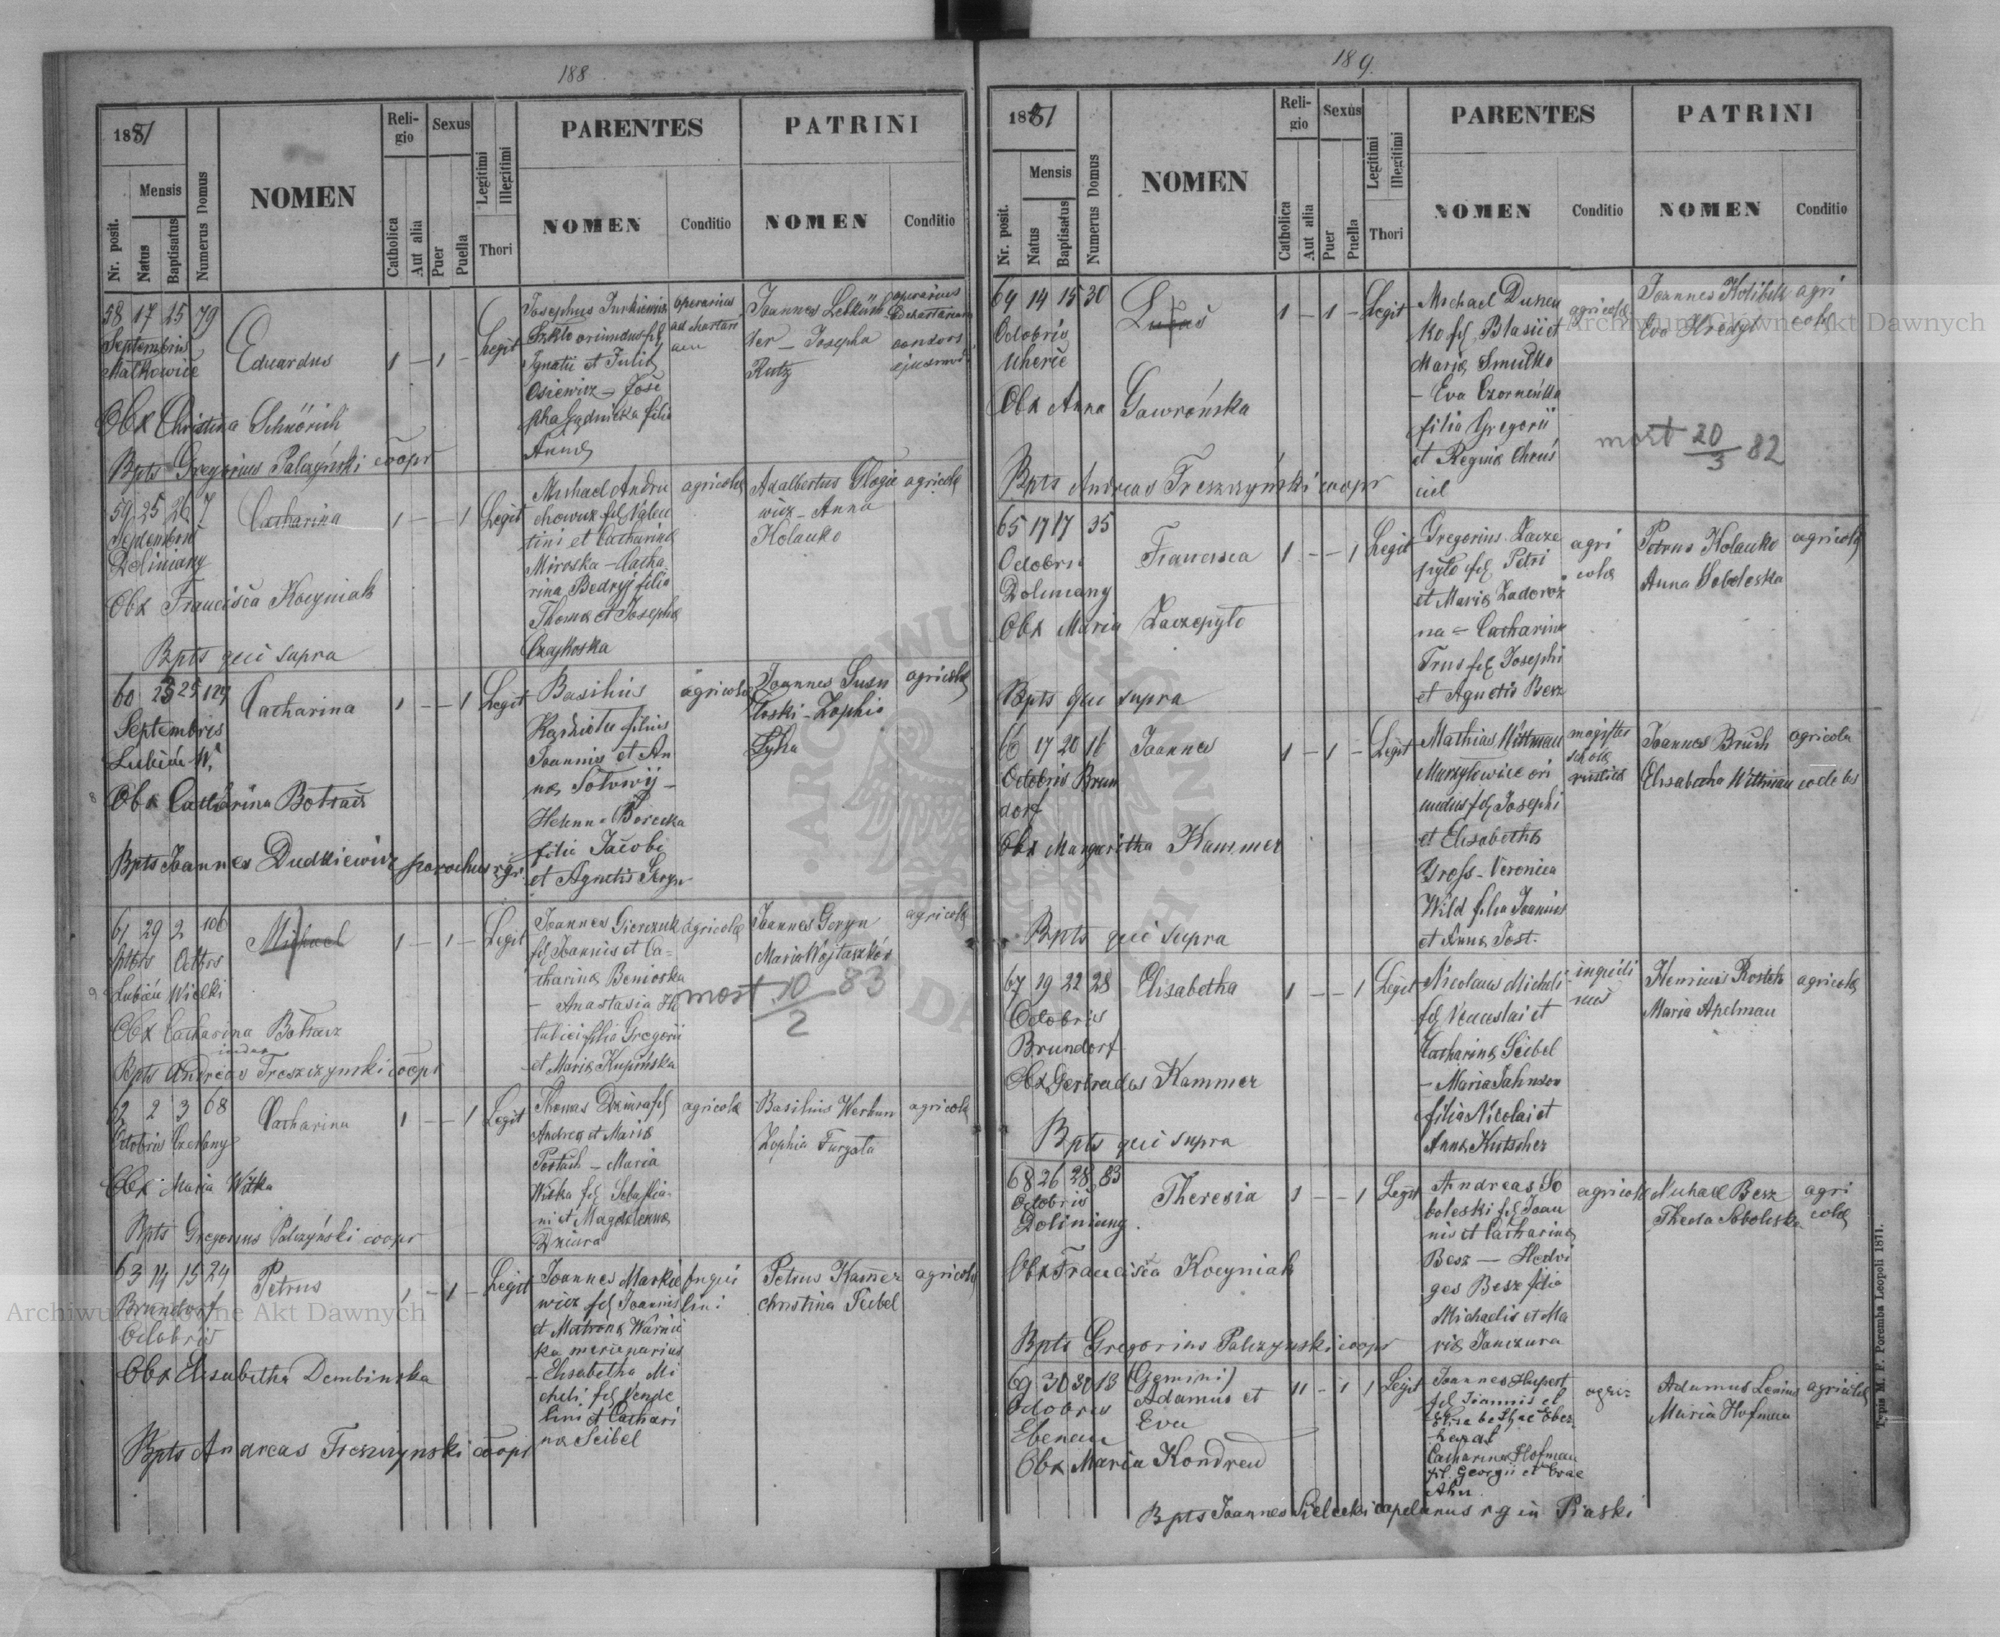 188
1881
Nr. posit.
Mensis
Natus
Baptisatus
Numerus Domus
NOMEN
Religio
Catholica
Aut alia
Sexus
Puer
Puella
Legitimi
Illegitimi
Thori
PARENTES
NOMEN
Conditio
PATRINI
NOMEN
Conditio
58 17 25 79
Septembris
Malkowice
Eduardus
1 – 1 –
Legit
Josephus
oriundus fil
Ignatii et Julia
Osiewicz – Jose
pha filia
Anna
operarius
Joannes
ter – Josepha
Rutz
operarius
Obx Christina Schnörich
Bpts Gregorius Palczyński coopr
59 25 26 7
Septembris
Doliniany
Catharina
1 – – 1
Legit
Michael Andru
chowicz fil Valen
tini et Catharina
Miroska – Catha
rina Bedryj filia
Thoma et Josepha
Czajkoska
agricola
Adalbertus Glogie
wicz – Anna
Kolanko
agricola
Obx Francisca Kocyniak
Bpts qui supra
60 23 25 129
Septembris
Lubień W.
Catharina
1 – – 1
Legit
Basilius
filius
Joannis et An
na Sotowij –
Helena Borecka
filia Jacobi
et Agnetis Goryn
agricola
Joannes Susu
loski – Zophia
Lyka
agricola
Obx Catharina Botracz
Bpts Joannes Dudkiewicz parochus r gr.
61 29 2 106
Sptbrs Octbrs
Lubień Wielki
Michael
1 – 1 –
Legit
Joannes Gierczuk
fil Joannis et Ca-
tharina Benioska
– Anastasia Ha
filia Gregorii
et Maria Kupińska
agricola
Joannes Goryn
Maria Wojtaszków
agricola
mort 10/2 83
Obx Catharina Botracz
Bpts Andreas Treszczynski coopr
62 2 3 68
Octobris Czerlany
Catharina
1 – – 1
Legit
Thomas Dziura fil
Andrea et Maria
Portach – Maria
Witka fil Sebastia-
ni et Magdalenna
Dziura
agricola
Basilius Werbun
Zophia Furgata
agricola
Obx Maria Witka
Bpts Gregorius Palczyński coopr
63 14 15 24
Brundorf
Octobris
Petrus
1 – 1 –
Legit
Joannes Markie
wicz fil Joannis
et Matrona Warnic
ka
– Elisabetha Mi
cheli fil Vende
lini et Cathari
na Seibel
Inqui
lini
Petrus Kamer
Christina Feibel
agricola
Obx Elisabetha Dembinska
Bpts Andreas Treszczynski coopr
189
1881
Nr. posit.
Mensis
Natus
Baptisatus
Numerus Domus
NOMEN
Religio
Catholica
Aut alia
Sexus
Puer
Puella
Legitimi
Illegitimi
Thori
PARENTES
NOMEN
Conditio
PATRINI
NOMEN
Conditio
64 14 15 30
Octobris
Uherce
Lucas
1 – 1 –
Legit
Michael Dunen
ko fil Blasii et
Maria Smutko
– Eva Czorneńka
filia Gregorii
et Regina Chruś
ciel
agricola
Joannes Kolibek
Eva Hredyl
agri
cola
mort 20/3 82
Obx Anna Gawrońska
Bpts Andreas Treszczyński coopr
65 17 17 35
Octobris
Doliniany
Francisca
1 – – 1
Legit
Gregorius Zacze
pyło fil Petri
et Maria Zadoroz
na – Catharina
Trus fil Josephi
et Agnetis Besz
agri
cola
Petrus Kolanko
Anna Soboleska
agricola
Obx Maria Zaczepyło
Bpts qui supra
66 17 20 16
Octobris Brun
dorf
Joannes
1 – 1 –
Legit
Mathias Wittman
ori
undus fil Josephi
et Elisabetha
Gross – Veronica
Wild filia Joannis
et Anna Jost.
magister
schola
rustica
Joannes Bruch
Elisabetha Wittman
agricola
coelebs
Obx Margaritha Kammer
Bpts qui supra
67 19 22 28
Octobris
Brundorf
Elisabetha
1 – – 1
Legit
Nicolaus Micheli
fil Venceslai et
Catharina Seibel
– Maria Jahnson
filia Nicolai et
Anna Kutscher
inquili
nus
Henricus
Maria Apelman
agricola
Obx Gertrudas Kammer
Bpts qui supra
68 26 28 83
Octobris
Doliniany
Theresia
1 – – 1
Legit
Andreas So
boleski fil Joan
nis et Catharina
Besz – Hedvi
ges Besz filia
Michaelis et Ma
ria Janczura
agricola
Michael Besz
Thecla Soboleska
agri
cola
Obx Francisca Kocyniak
Bpts Gregorius Palczynski coopr
69 30 30 13
Octobris
Ebenau
(Gemini)
Adamus et
Eva
11 – 1 1
Legit
Joannes Hupert
fil Joannis et
Elisabethae Eber-
hardt
Catharina Hofman
fil. Georgii et Evae
Ahn
agri-
Adamus Lenius
Maria Hofman
agricola
Obx Maria Kondred
Bpts Joannes Sielecki capelanus r g in Piaski
Typis M. F. Poremba Leopoli 1871.
Archiwum Główne Akt Dawnych
Archiwum Główne Akt Dawnych